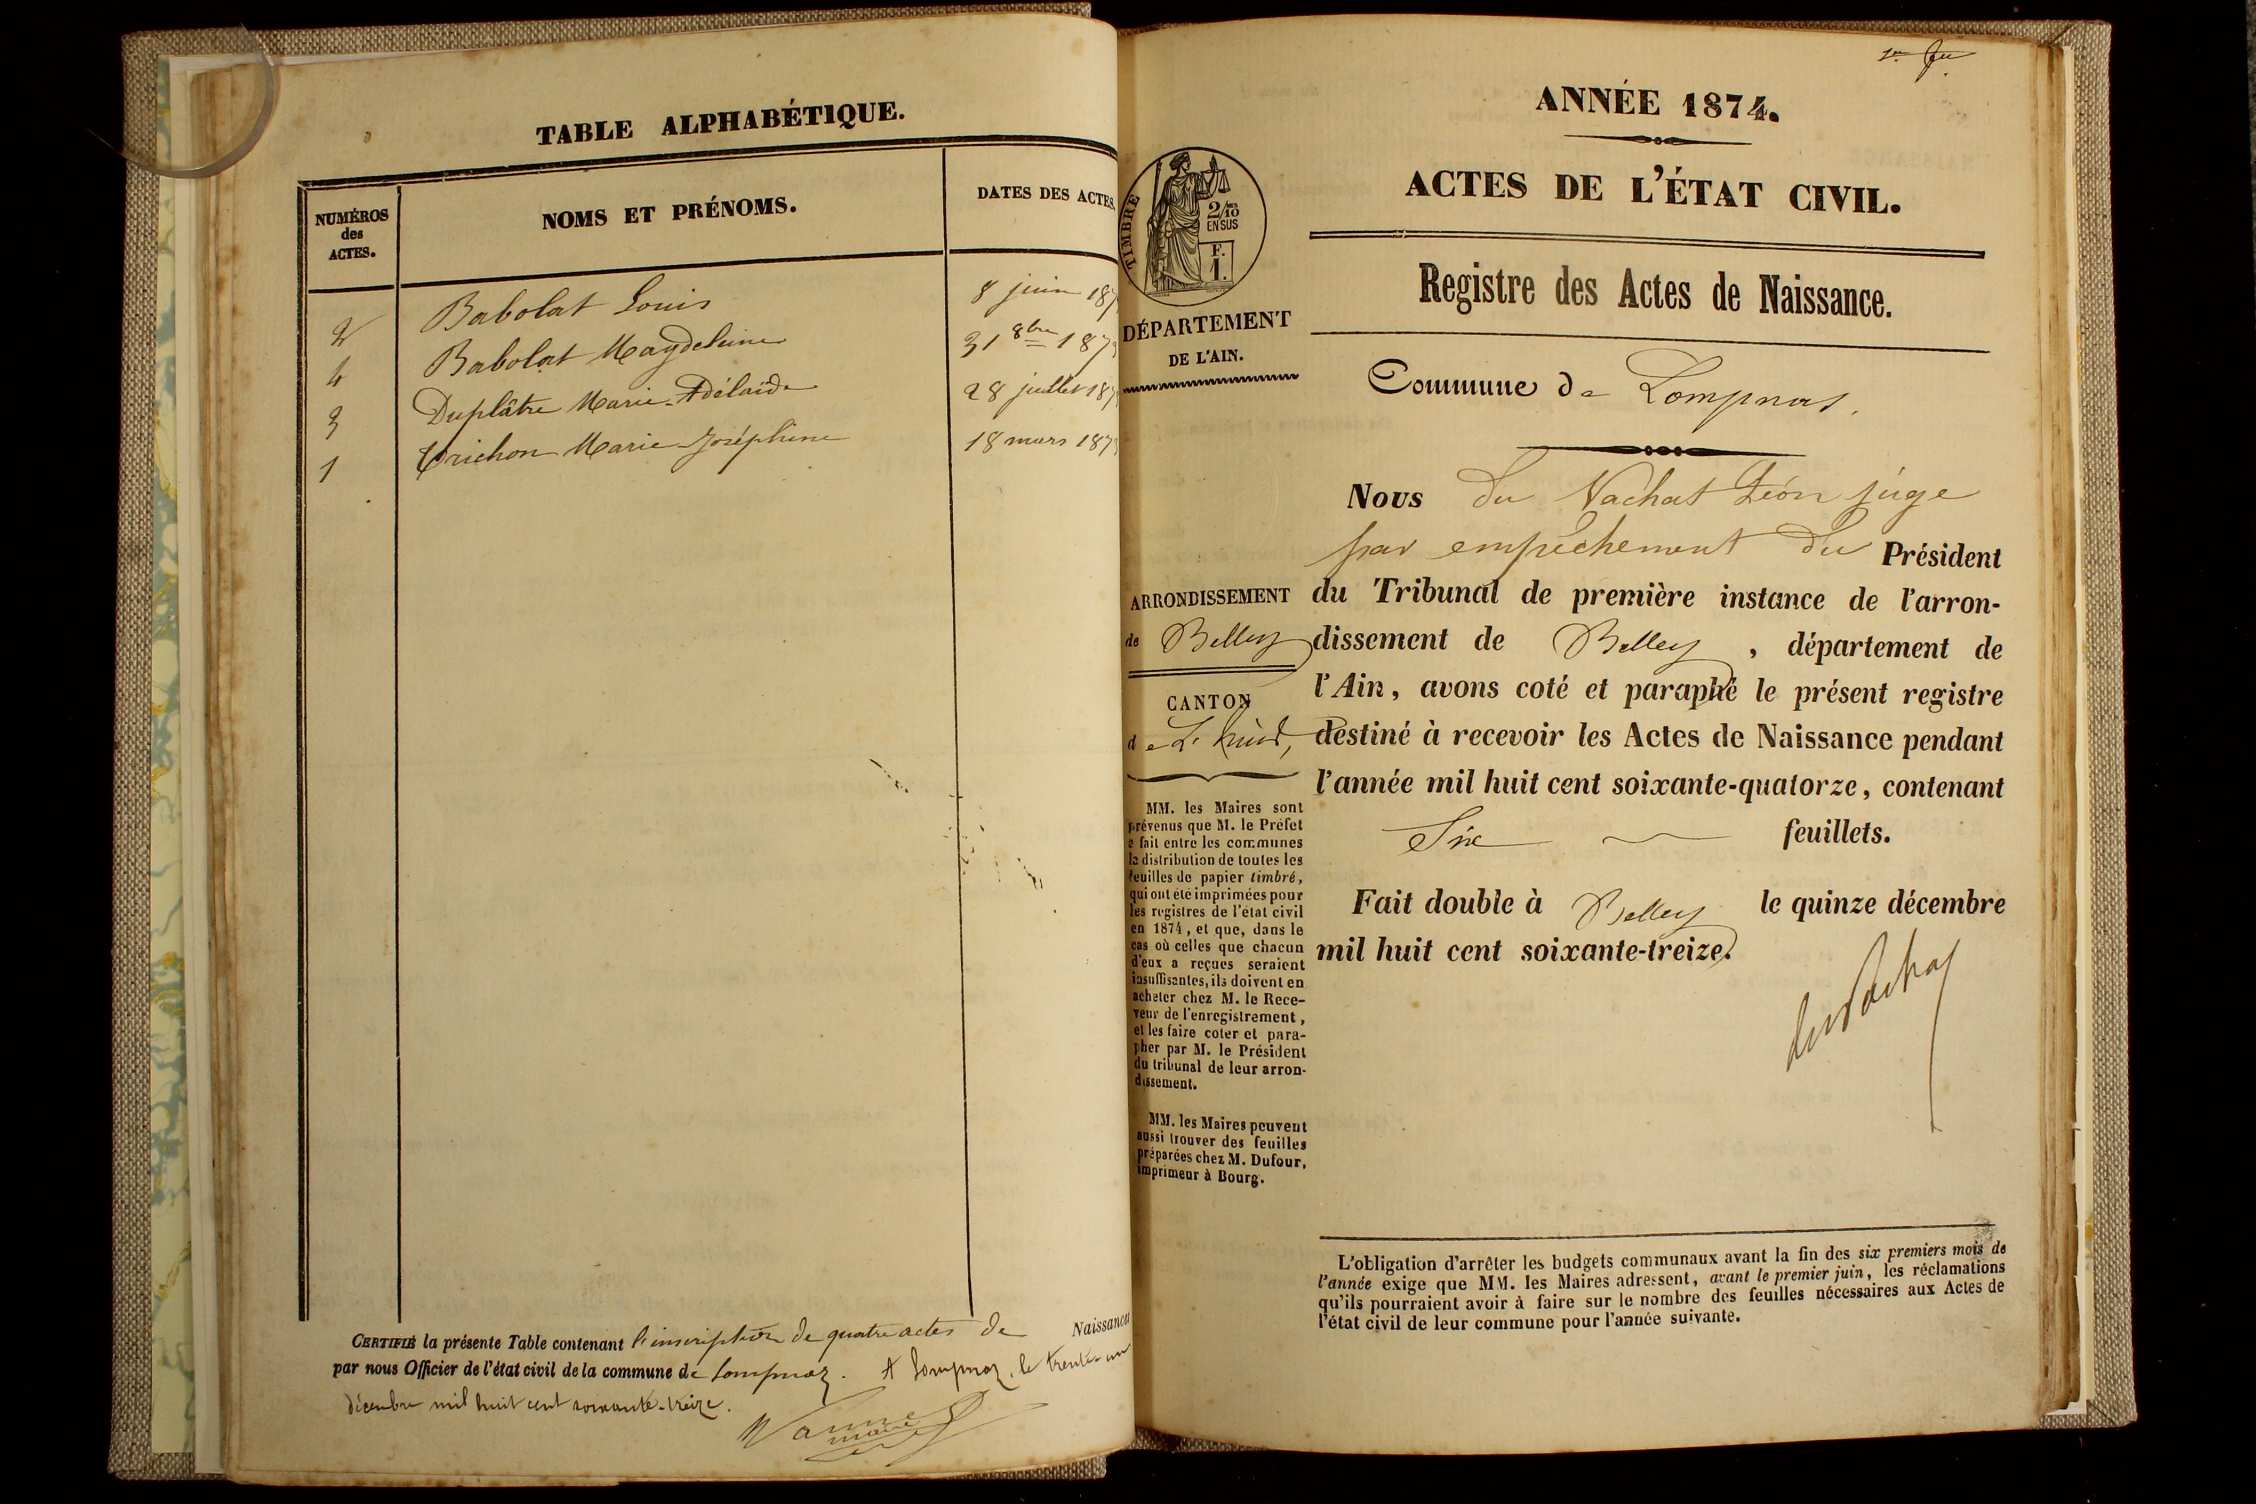 TABLE ALPHABÉTIQUE.
NUMÉROS
des
ACTES.
NOMS ET PRÉNOMS.
DATES DES ACTES.
2 Babolat Louis 8 juin 187
4 Babolat Magdeleine 31 8bre 187
3 Duplâtre Marie-Adélaïde 28 juillet 187
1 Trichon Marie-Joséphine 18 mars 187
CERTIFIÉ la présente Table contenant l'inscription de quatre actes de Naissances
par nous Officier de l'état civil de la commune de Lompnaz. A Lompnaz, le trente-un
décembre mil huit cent soixante-treize.
maire
1er fu
ANNÉE 1874.
ACTES DE L'ÉTAT CIVIL.
TIMBRE
2/10 MES
EN SUS
F.
1.
DÉPARTEMENT
DE L'AIN.
Registre des Actes de Naissance.
Commune de Lompnas.
Nous du Vachat Léon juge
par empêchement du Président
du Tribunal de première instance de l'arron-
dissement de Belley, département de
l'Ain, avons coté et paraphé le présent registre
destiné à recevoir les Actes de Naissance pendant
l'année mil huit cent soixante-quatorze, contenant
Six feuillets.
Fait double à Belley le quinze décembre
mil huit cent soixante-treize.
du Vachat
ARRONDISSEMENT
de Belley
CANTON
de L'huis,
MM. les Maires sont
prévenus que M. le Préfet
a fait entre les communes
la distribution de toutes les
feuilles de papier timbré,
qui ont été imprimées pour
les registres de l'état civil
en 1874, et que, dans le
cas où celles que chacun
d'eux a reçues seraient
insuffisantes, ils doivent en
acheter chez M. le Rece-
veur de l'enregistrement,
et les faire coter et para-
pher par M. le Président
du tribunal de leur arron-
dissement.
MM. les Maires peuvent
aussi trouver des feuilles
préparées chez M. Dufour,
imprimeur à Bourg.
L'obligation d'arrêter les budgets communaux avant la fin des six premiers mois de
l'année exige que MM. les Maires adressent, avant le premier juin, les réclamations
qu'ils pourraient avoir à faire sur le nombre des feuilles nécessaires aux Actes de
l'état civil de leur commune pour l'année suivante.